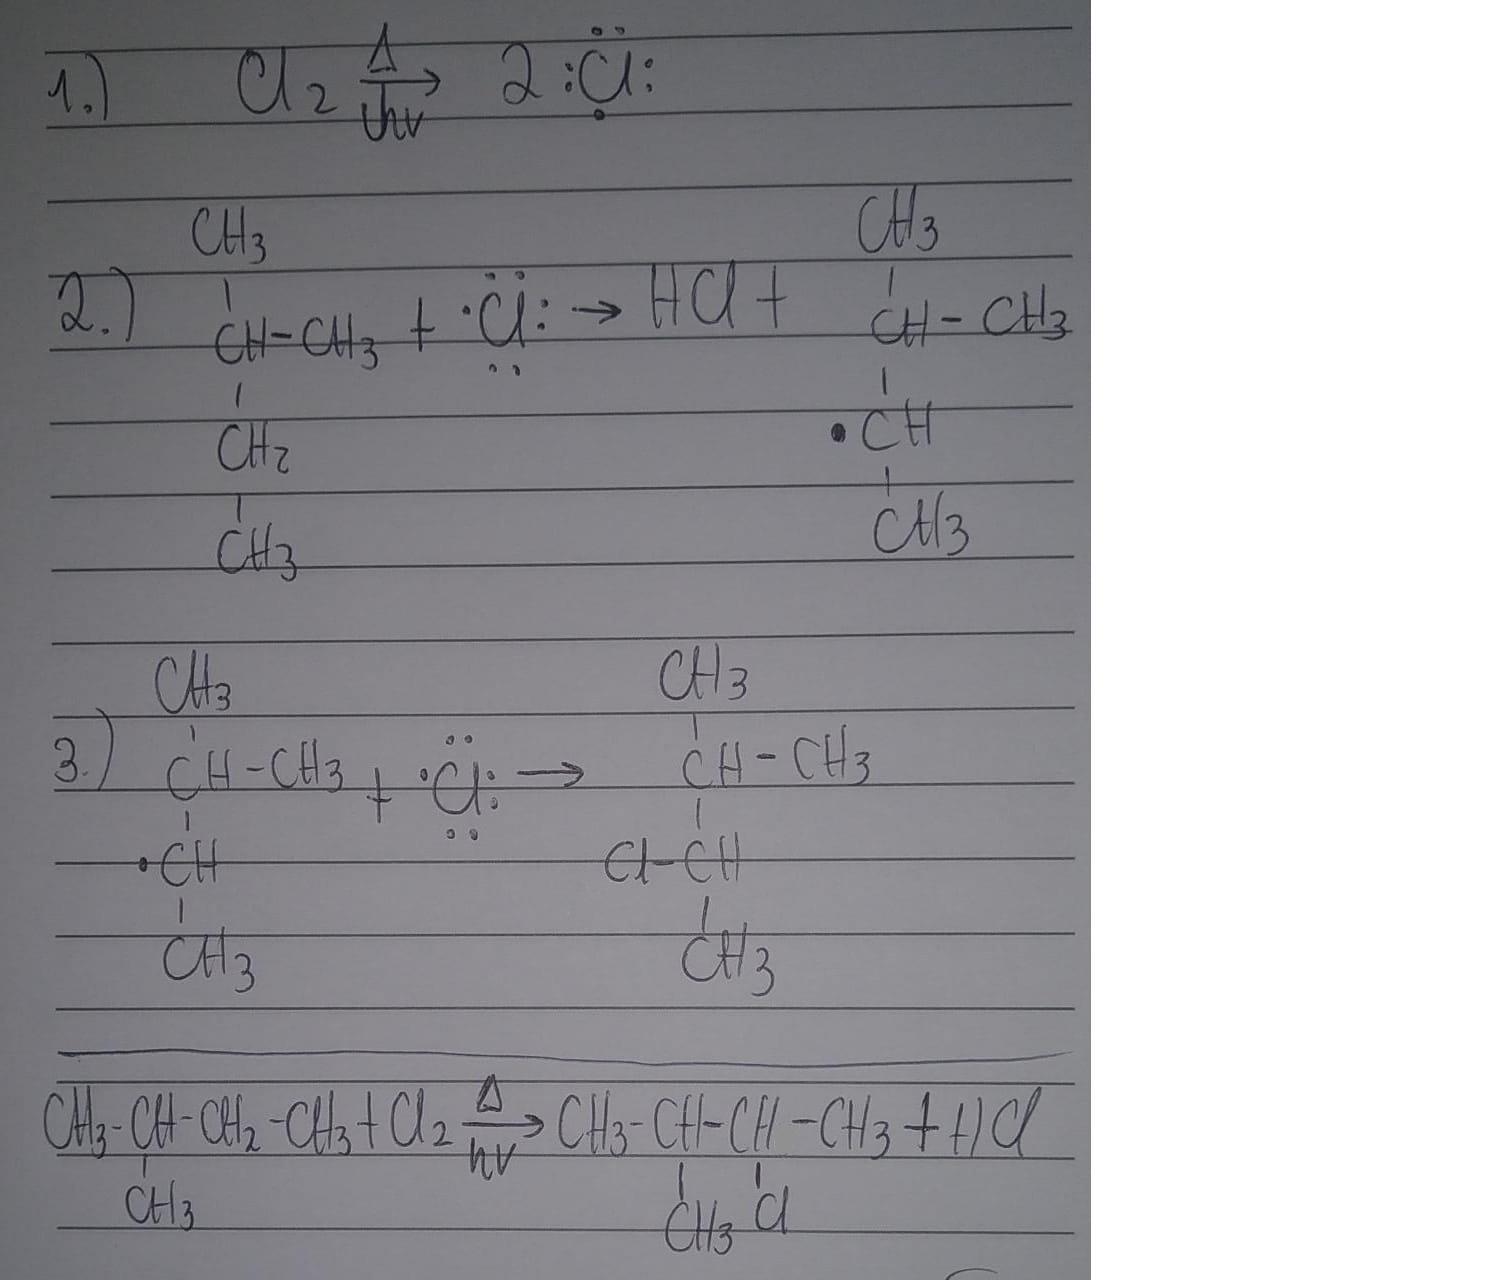 1.) Cl2 Δ→hν 2 :C̈l:
CH3 CH3
2.) CH-CH3 + ·C̈l: → HCl + CH-CH3
CH2 ·CH
CH3 CH3
CH3 CH3
3.) CH-CH3 + ·C̈l: → CH-CH3
·CH Cl-CH
CH3 CH3
CH3-CH-CH2-CH3+Cl2 Δ→hν CH3-CH-CH-CH3+HCl
CH3 CH3 Cl